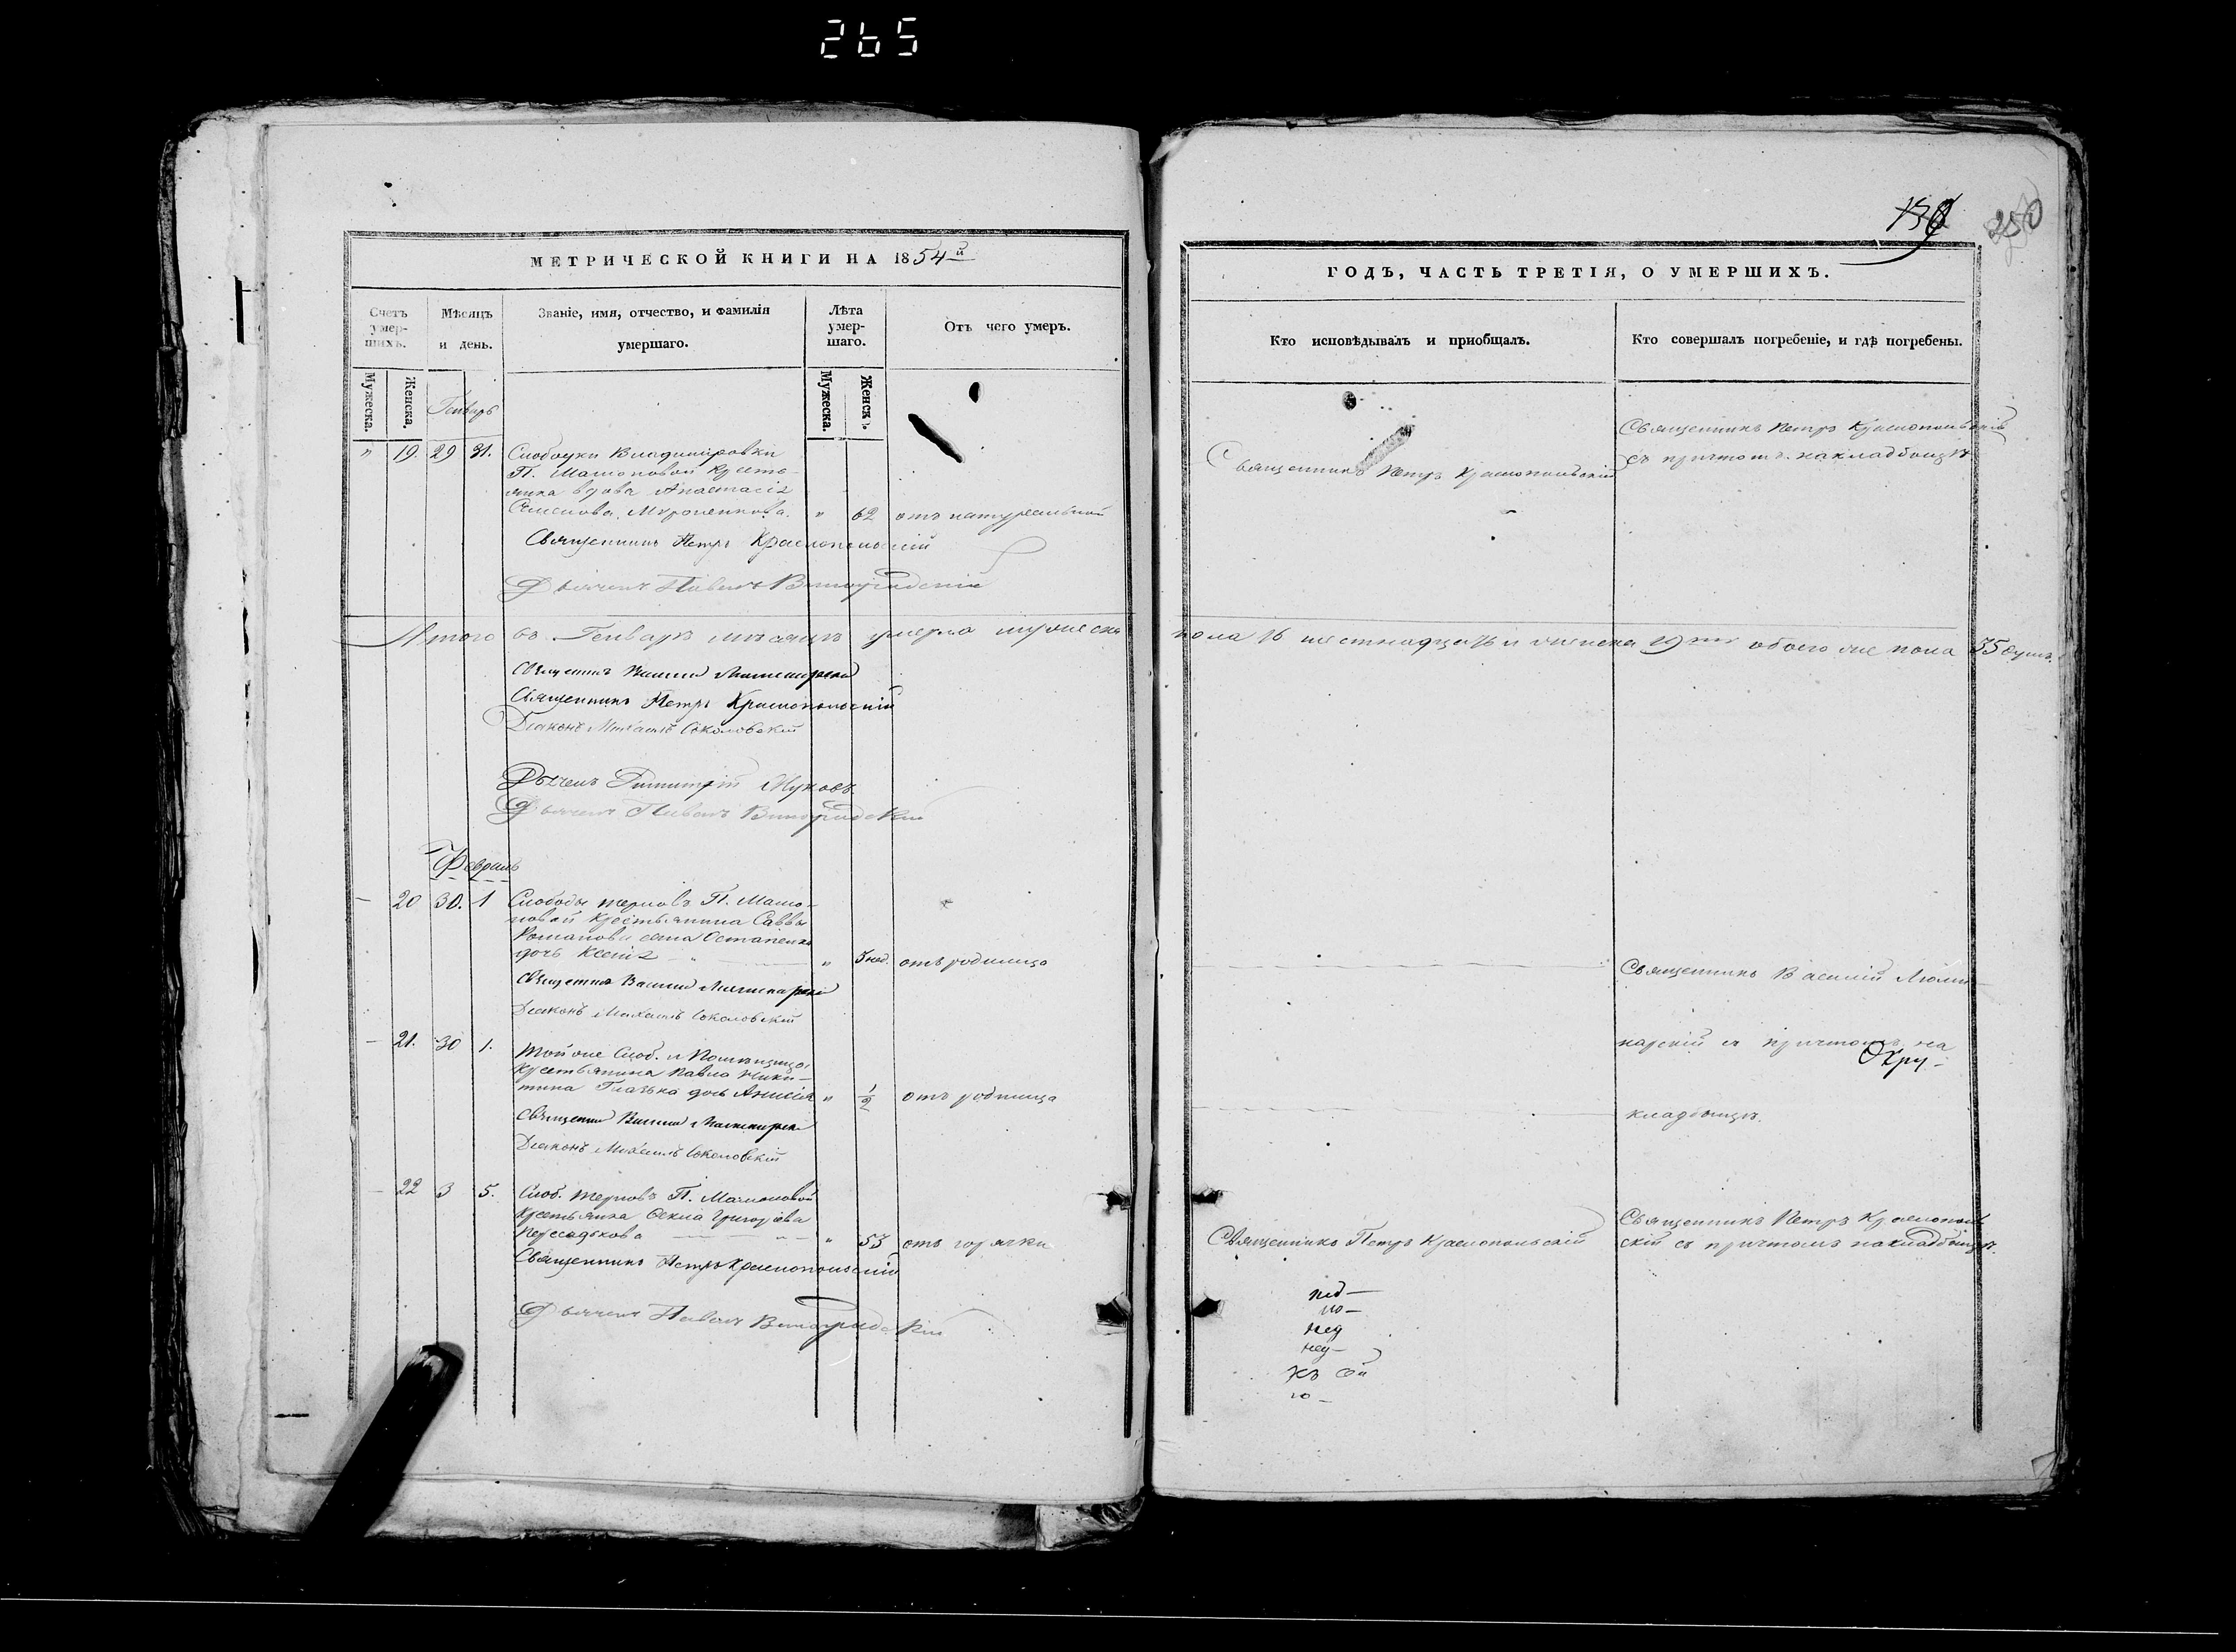 265
136
250
МЕТРИЧЕСКОЙ КНИГИ НА 1854й
Счетъ умершихъ.
Мѣсяцъ и день.
Званіе, имя, отчество, и фамилія умершаго.
Лѣта умершаго.
Отъ чего умеръ.
Мужеска.
Женска.
Генварь
Мужеска.
Женск.
" 19. 29 31. Слободки Владимировки
П. Мамоновой кресть-
янка вдова Анастасія
Семенова " 62 отъ натуральной
Священникъ Петръ Краснопольскій
Дьячекъ Павелъ Виноградскій
Итого въ Генварѣ мѣсяцѣ умерло мужеска
Священникъ Василій
Священникъ Петръ Краснопольскій
Діаконъ Михаилъ Соколовскій
Дьячекъ Димитрій Жуковъ
Дьячекъ Павелъ Виноградскій
Февраль
— 20 30. 1 Слободы Терновъ П. Мамо-
новой крестьянина Саввы
Романова сына Остапенка
дочь Ксенія " 3 нед. отъ родимца
Священникъ Василій
Діаконъ Михаилъ Соколовскій
— 21. 30 1. Той же Слоб. и Помѣщицы
крестьянина Павла Ники-
тина дочь Анисія " 1/2 отъ родимца
Священникъ Василій
Діаконъ Михаилъ Соколовскій
— 22 3 5. Слоб. Терновъ П. Мамоновой
крестьянка Фекла Григорьева
" 53 отъ горячки
Священникъ Петръ Краснопольскій
Дьячекъ Павелъ Виноградскій
ГОДЪ, ЧАСТЬ ТРЕТІЯ, О УМЕРШИХЪ.
Кто исповѣдывалъ и приобщалъ.
Кто совершалъ погребеніе, и гдѣ погребены.
Священникъ Петръ Краснопольскій
съ причтомъ на кладбищѣ
Священникъ Петръ Краснопольскій
пола 16 шестнадцать и женска 19 обоего же пола 35 душъ.
Священникъ Василій
съ причтомъ на
кладбищѣ.
Священникъ Петръ Краснополь
Священникъ Петръ Краснопольскій
скій съ причтомъ на кладбищѣ.